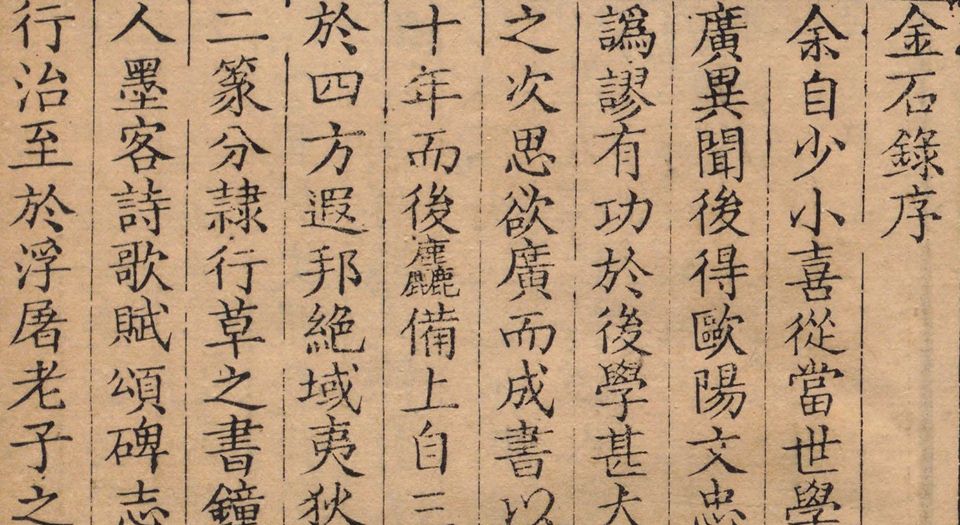 金石錄序
余自少小喜從當世學
廣異聞後得歐陽文忠
譌謬有功於後學甚大
之次思欲廣而成書以
十年而後麤備上自三
於四方遐邦絕域夷狄
二篆分隸行草之書鐘
人墨客詩歌賦頌碑志
行治至於浮屠老子之